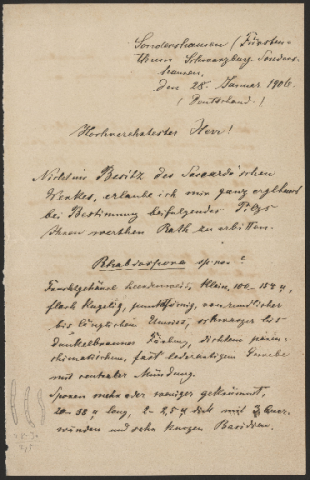 Sondershausen (Fürsten-
thum Schwarzburg Sonders-
hausen,
den 28. Januar 1906.
(Deutschland.)
Hochverehrtester Herr!
Nicht im Besitz des Saccardo'schen
Werkes, erlaube ich mir ganz ergebenst
bei Bestimmung beifolgender Pilze
Ihren werthen Rath zu erbitten.
Rhabdospora sp. nov.?
Fruchtgehäuse heerdenweis, klein, 100-154 µ,
flach kugelig, punktförmig, von rundlicher
bis länglichem Umriss, schwarzer bis
dunkelbrauner Färbung, dichtem paren-
chimatischem, fast lederartigem Gewebe
mit centraler Mündung.
Sporen mehr oder weniger gekrümmt,
20-38 µ lang, 2-2,5 µ dick mit 3 Quer-
wänden und sehr kurzen Basidien.